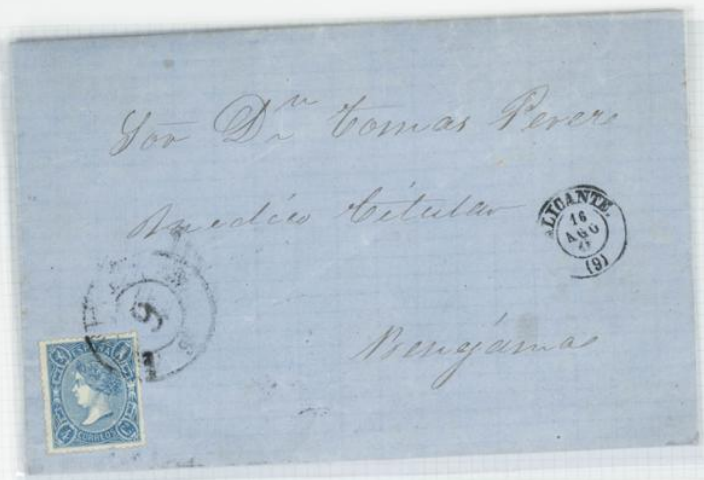 Sor Dn Tomas Perere
Medico Titular
ALICANTE.
16
AGO
(9)
9
Benejama
4 4
ESPAÑA
CORREOS